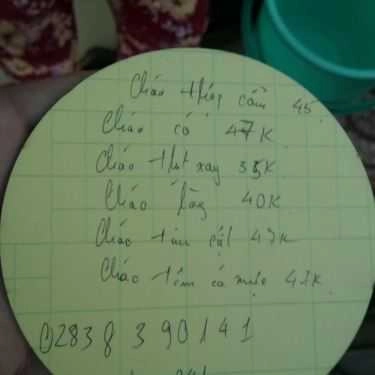 Cháo thập cẩm 45
Cháo cá 47K
Cháo thịt xay 35K
Cháo lòng 40K
Cháo tim cật 47K
Cháo tôm cá mực 47K
02838 390141